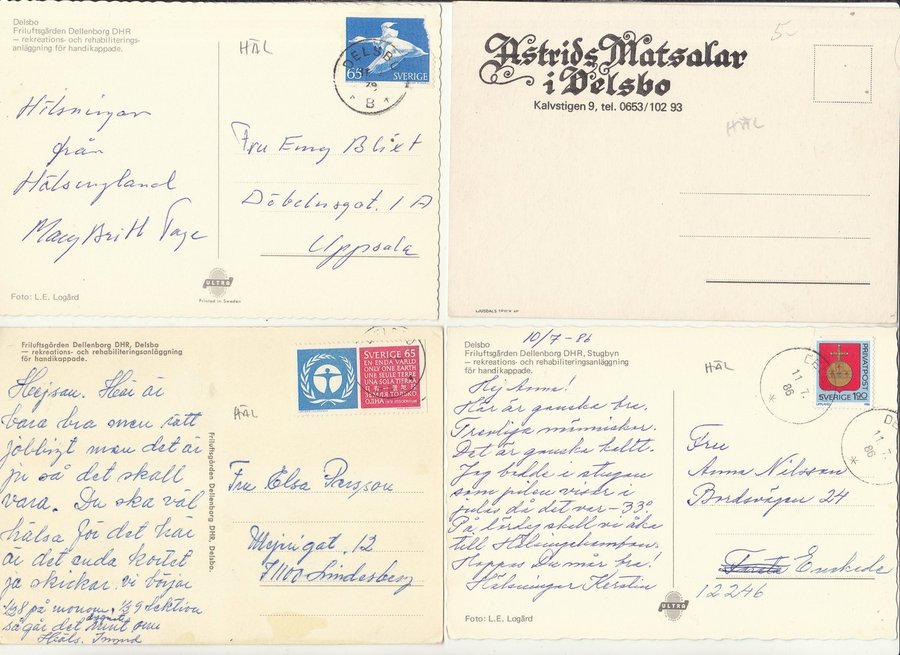 Delsbo
Friluftsgården Dellenborg DHR
– rekreations- och rehabiliterings-
anläggning för handikappade.
HÄL
65 SVERIGE
DELSBO
B
Hälsningar
från
Hälsingland
May Britt Tage
Fru Emy Blixt
Döbelnsgat. 1 A
Uppsala
ULTRA
Printed in Sweden
Foto: L.E. Logård
5-
Astrids Matsalar
i Delsbo
Kalvstigen 9, tel. 0653/102 93
HÄL
LJUSDALS TRYCK AB
Friluftsgården Dellenborg DHR, Delsbo
– rekreations- och rehabiliteringsanläggning
för handikappade.
SVERIGE 65
EN ENDA VÄRLD
ONLY ONE EARTH
UNE SEULE TERRE
UNA SOLA TIERRA
HÄL
Heijsan. Här är
bara bra men rätt
jobbigt men det är
ju så det skall
vara. Du ska väl
hälsa för det här
är det enda kortet
ja skickar. vi börjar
på
så går det runt om
Häls.
Friluftsgården Dellenborg DHR, Delsbo.
Fru Elsa Persson
Mejrigat. 12
71100 Lindesberg
Delsbo
10/7 - 86
Friluftsgården Dellenborg DHR, Stugbyn
– rekreations- och rehabiliteringsanläggning
för handikappade.
HÄL
11.7.
86
PRIVATPOST
SVERIGE 1.20
DE
11.7.
86
Hej Anna!
Här är ganska bra.
Trevliga människor.
Det är ganska kallt.
Jag bodde i stugan
som pilen visar i
julas då det var -33°.
På lördag skall vi åka
till Hälsingehambon.
Hoppas Du mår bra!
Hälsningar Kerstin
Fru
Anna Nilsson
Bordsvägen 24
Enskede
12246
ULTRA
Foto: L.E. Logård